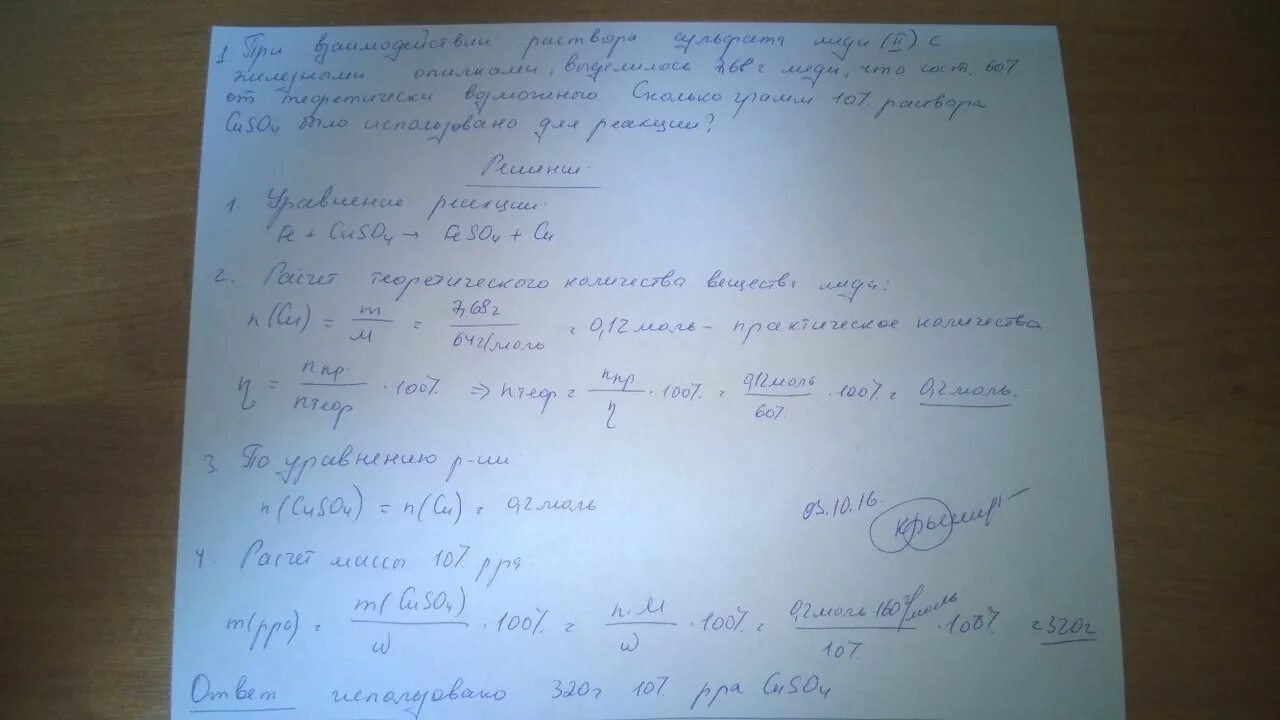 1 При взаимодействии раствора сульфата меди (II) с
железными опилками, выделилось 7,68 г меди, что сост. 60%
от теоретически возможного. Сколько грамм 10% раствора
CuSO4 было использовано для реакции?
Решение.
1. Уравнение реакции.
Fe + CuSO4 → FeSO4 + Cu
2. Расчет теоретического количества веществ меди:
n(Cu) = m/M = 7,68г/64г/моль = 0,12 моль - практическое количества
η = nпр./nтеор · 100% ⇒ nтеор = nпр/η · 100% = 0,12 моль/60% · 100% = 0,2 моль.
3. По уравнению р-ии
n(CuSO4) = n(Cu) = 0,2 моль
03.10.16.
4. Расчет массы 10% рра
m(рра) = m(CuSO4)/ω · 100% = n·M/ω · 100% = 0,2 моль·160г/моль/10% · 100% = 320г
Ответ использовано 320г 10% рра CuSO4